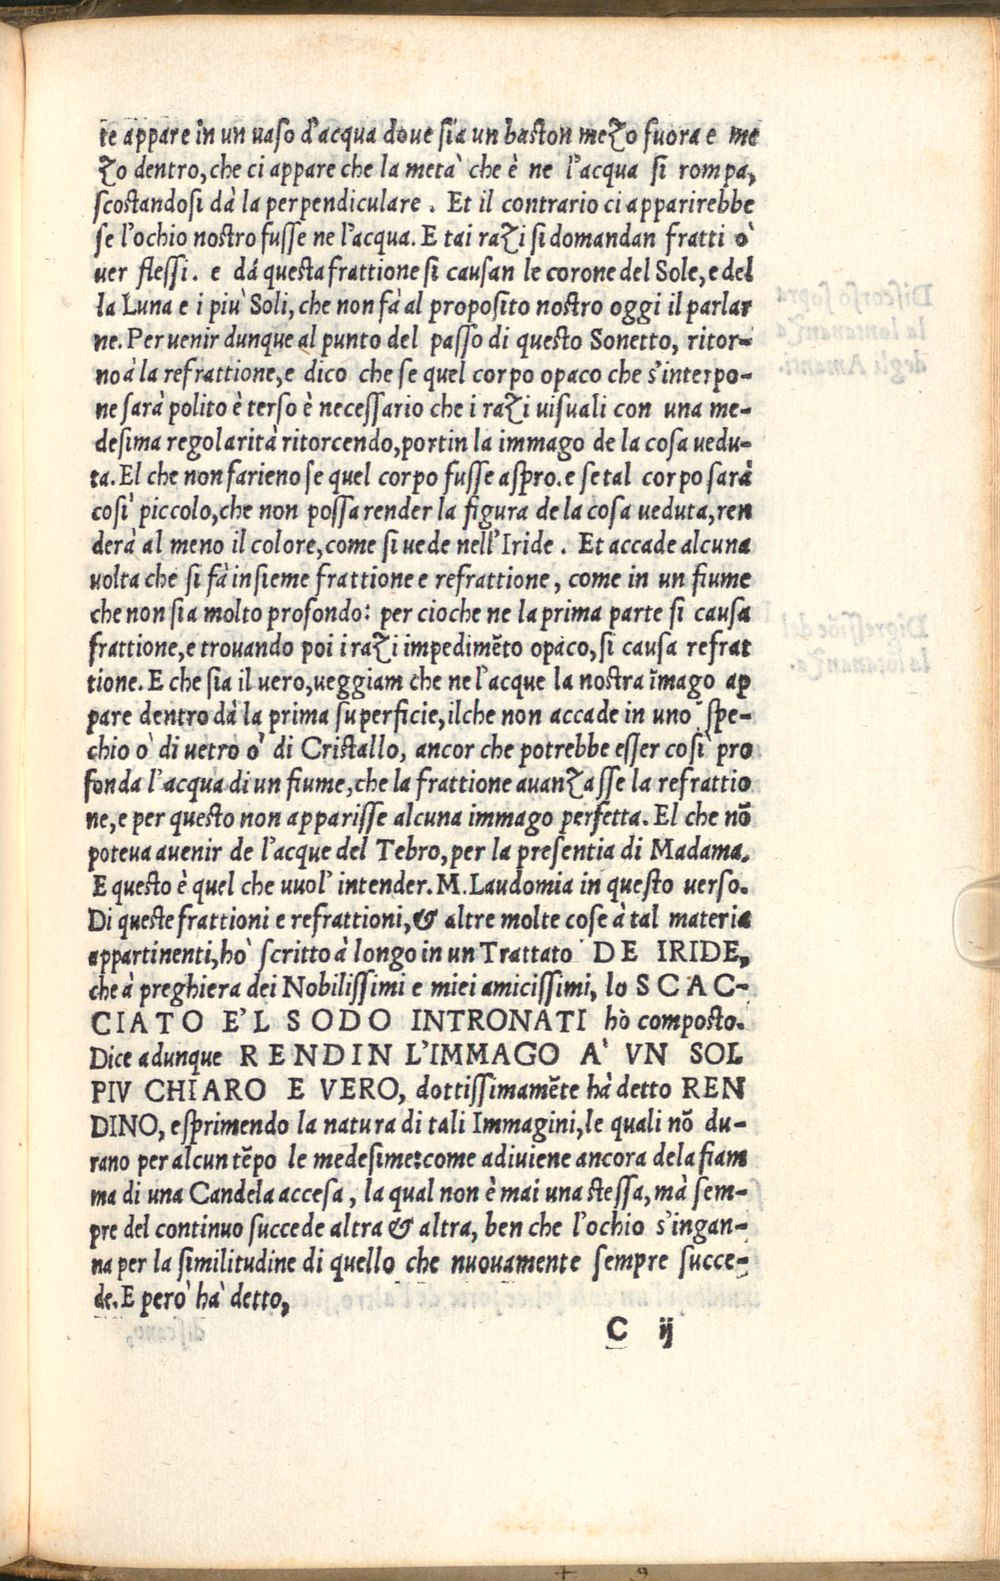 te appare in un uaso d'acqua doue sia un baston mezo fuora e me
zo dentro, che ci appare che la metà che è ne l'acqua si rompa,
scostandosi dà la perpendiculare. Et il contrario ci apparirebbe
se l'ochio nostro fusse ne l'acqua. E tai razi si domandan fratti ò
uer flessi. e dá questa frattione si causan le corone del Sole, e del
la Luna e i più Soli, che non fà al proposito nostro oggi il parlar
ne. Per venir dunque al punto del passo di questo Sonetto, ritor-
no à la refrattione, e dico che se quel corpo opaco che s'interpo-
ne sarà polito è terso è necessario che i razi uisuali con una me-
desima regolarità ritorcendo, portin la immago de la cosa uedu-
ta. El che non farieno se quel corpo fusse aspro. e se tal corpo sarà
così piccolo, che non possa render la figura de la cosa ueduta, ren
derà al meno il colore, come si uede nell'Iride. Et accade alcuna
volta che si fà insieme frattione e refrattione, come in un fiume
che non sia molto profondo: per cioche ne la prima parte si causa
frattione, e trouando poi i razi impedimẽto opaco, si causa refrat
tione. E che sia il uero, ueggiam che ne l'acque la nostra ĩmago ap
pare dentro dà la prima superficie, ilche non accade in uno spe-
chio ò di uetro ò di Cristallo, ancor che potrebbe esser così pro
fonda l'acqua di un fiume, che la frattione auanzasse la refrattio
ne, e per questo non apparisse alcuna immago perfetta. El che nõ
poteua auenir de l'acque del Tebro, per la presentia di Madama.
E questo è quel che uuol' intender. M. Laudomia in questo verso.
Di queste frattioni e refrattioni, & altre molte cose à tal materia
appartinenti, hò scritto à longo in un Trattato DE IRIDE,
che à preghiera dei Nobilissimi e miei amicissimi, lo SCAC-
CIATO E'L SODO INTRONATI hò composto.
Dice adunque RENDIN L'IMMAGO A' VN SOL
PIV CHIARO E VERO, dottissimamẽte hà detto REN
DINO, esprimendo la natura di tali Immagini, le quali nõ du-
rano per alcun tẽpo le medesime: come adiuiene ancora dela fiam
ma di una Candela accesa, la qual non è mai una stessa, mà sem-
pre del continuo succede altra & altra, ben che l'ochio s'ingan-
na per la similitudine di quello che nuouamente sempre succe-
de. E però hà detto,
C ij